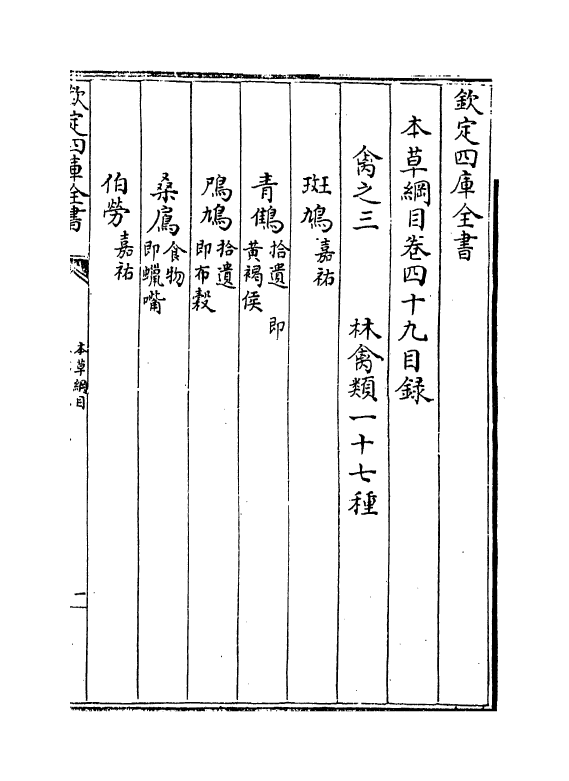 欽定四庫全書
本草綱目卷四十九目録
禽之三　　林禽類一十七種
斑鳩嘉祐
青鵻拾遺　即
黄褐侯
鳲鳩拾遺
即布穀
桑鳸食物
即蠟嘴
伯勞嘉祐
欽定四庫全書
本草綱目